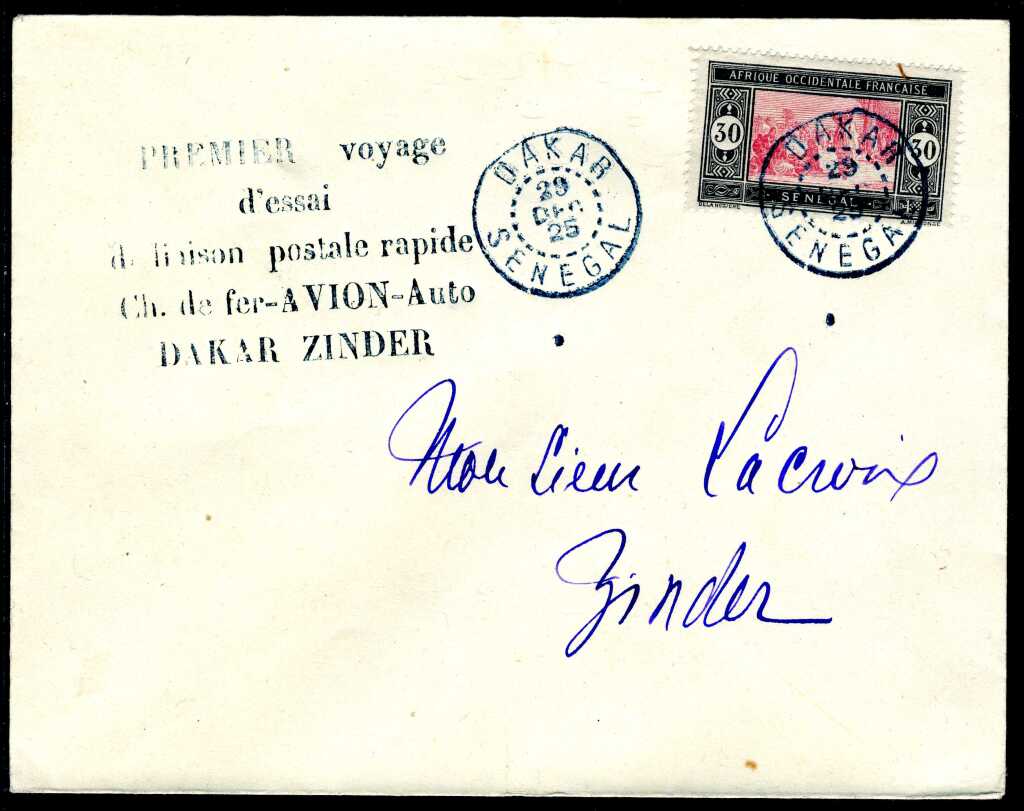 AFRIQUE OCCIDENTALE FRANÇAISE
30 30
SÉNÉGAL
DAKAR
29
25
SENEGAL
DAKAR
29
DEC
25
SENEGAL
PREMIER voyage
d'essai
de liaison postale rapide
Ch. de fer-AVION-Auto
DAKAR ZINDER
Monsieur Lacroix
Zinder